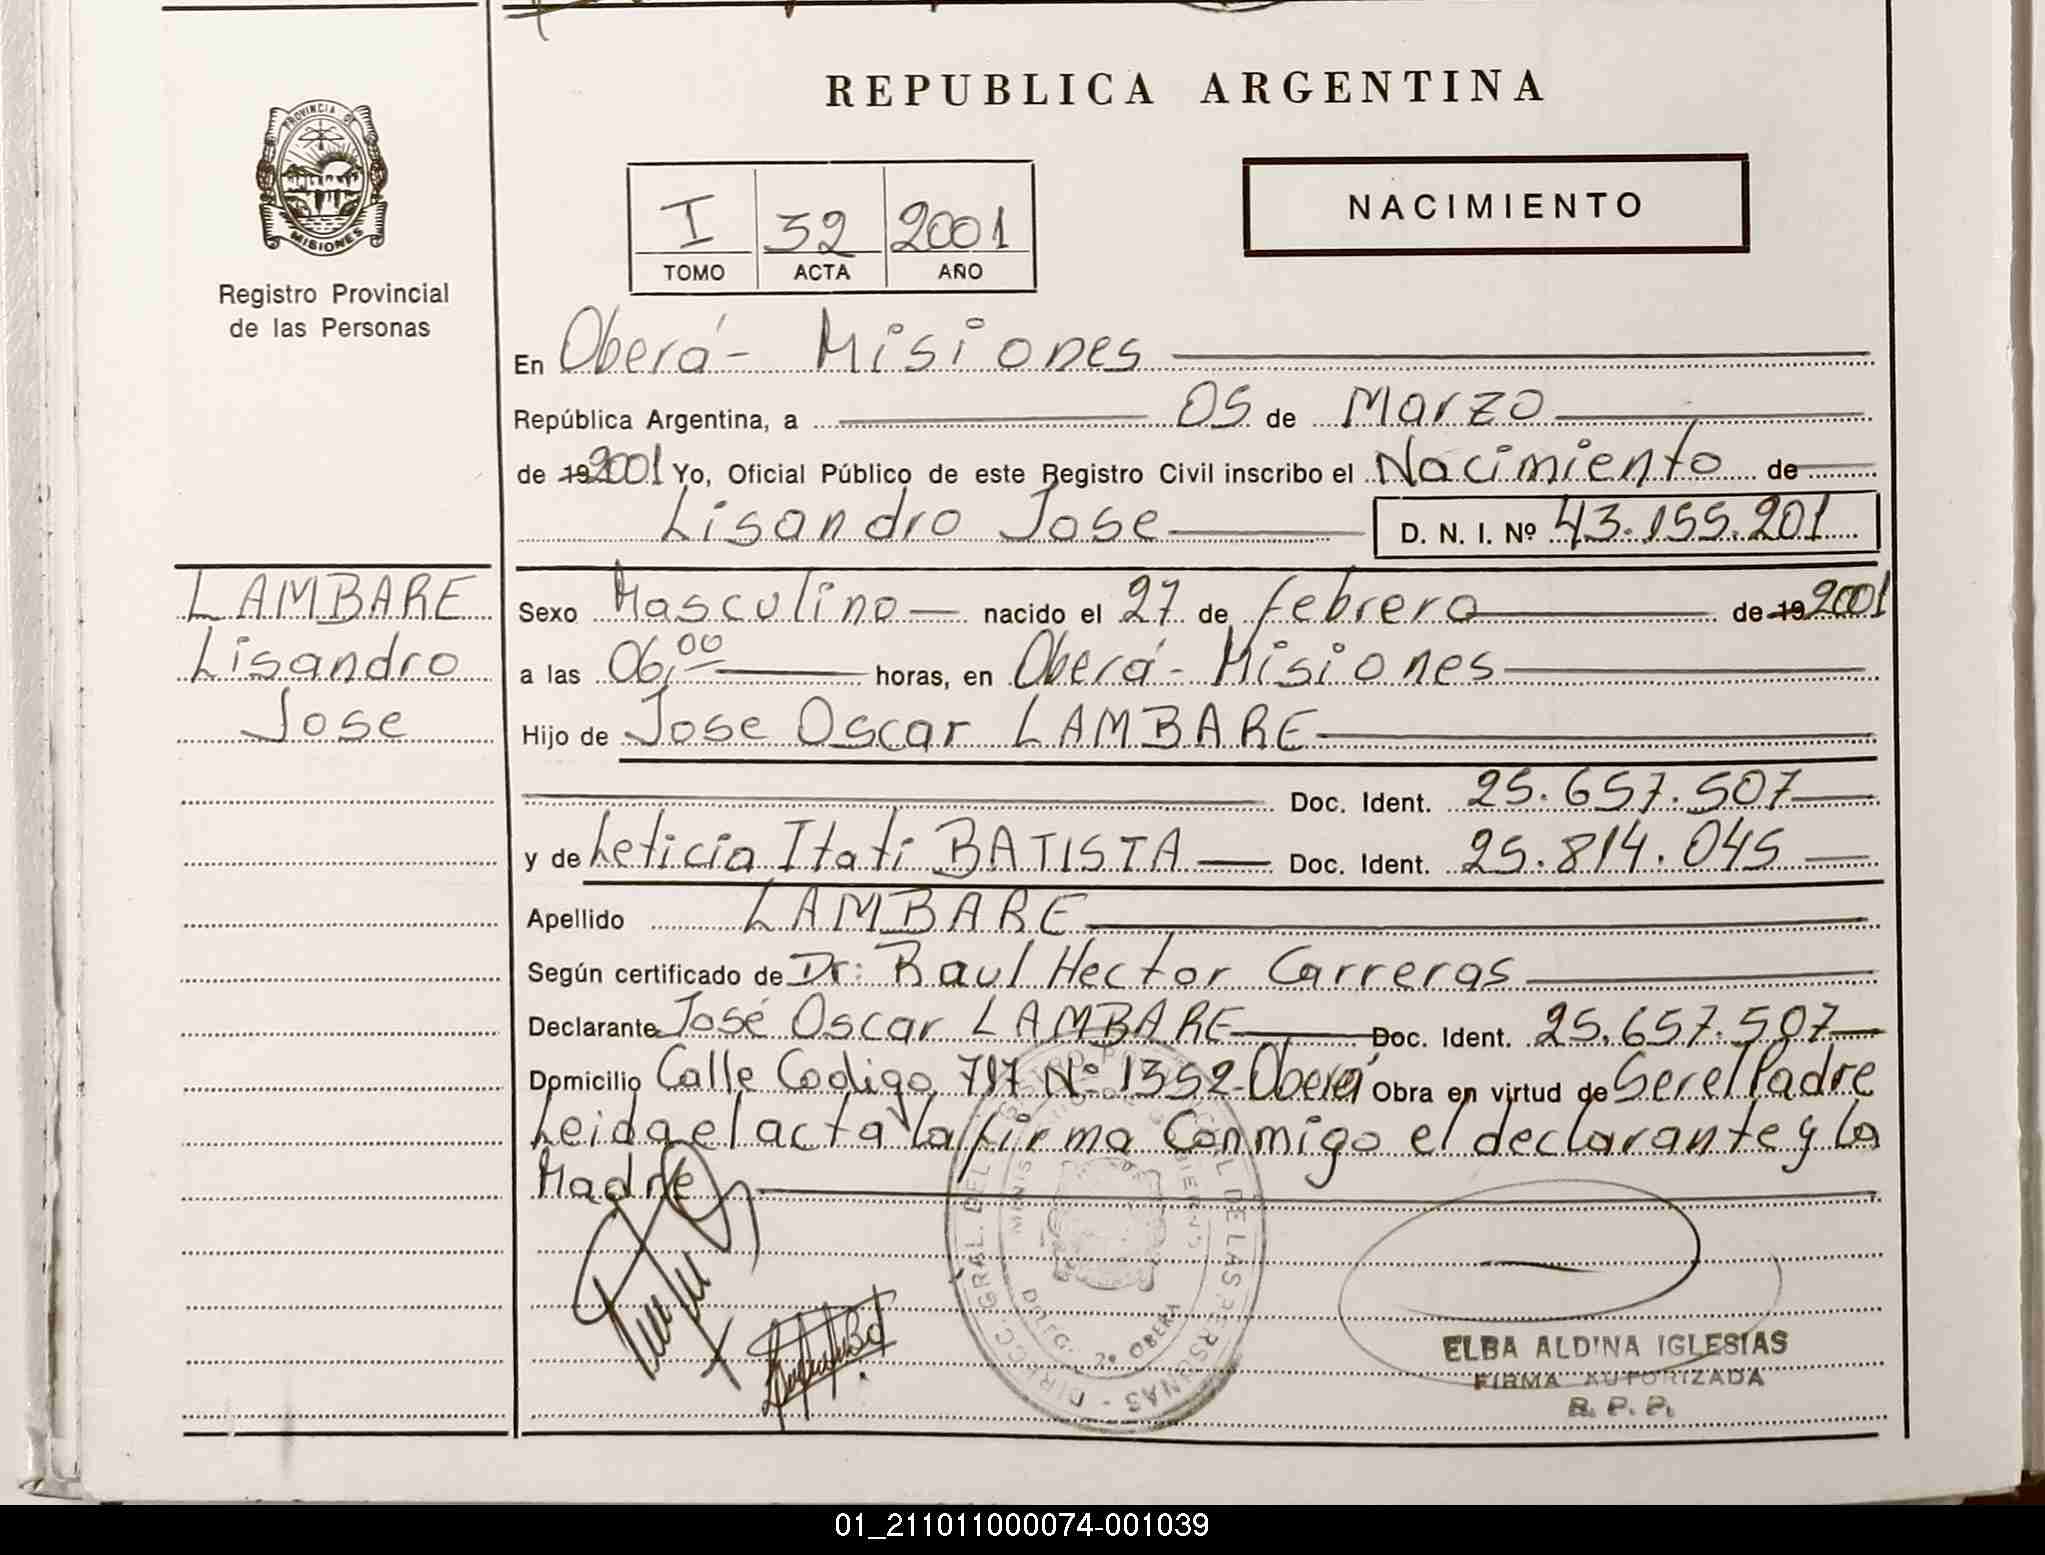 REPUBLICA ARGENTINA
PROVINCIA DE
MISIONES
Registro Provincial
de las Personas
I 32 2001
TOMO ACTA AÑO
NACIMIENTO
En Oberá - Misiones
República Argentina, a 05 de Marzo
de 19 2001 Yo, Oficial Público de este Registro Civil inscribo el Nacimiento de
Lisandro Jose D. N. I. Nº 43.155.201
LAMBARE
Lisandro
Jose
Sexo Masculino nacido el 27 de febrero de 19 2001
a las 06,00 horas, en Oberá - Misiones
Hijo de Jose Oscar LAMBARE
Doc. Ident. 25.657.507
y de Leticia Itati BATISTA Doc. Ident. 25.814.045
Apellido LAMBARE
Según certificado de Dr: Raul Hector Carreras
Declarante José Oscar LAMBARE Doc. Ident. 25.657.507
Domicilio Calle Codigo 717 Nº 1352 - Oberá Obra en virtud de Ser el Padre
Leida el acta la firma Conmigo el declarante y la
Madre
DIRECC. GRAL. DEL REGISTRO PROVINCIAL DE LAS PERSONAS -
MINISTERIO DE GOBIERNO
2º OBERA
ELBA ALDINA IGLESIAS
FIRMA AUTORIZADA
R. P. P.
01_211011000074-001039